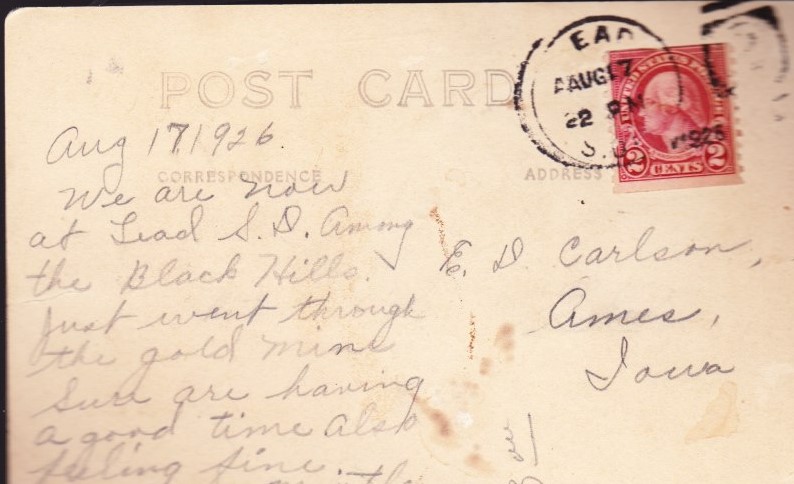 POST CARD
EAD
AUG 17
2 PM
S.D.
1926
UNITED STATES
2 CENTS 2
Aug 17 1926
CORRESPONDENCE
ADDRESS
We are now
at Lead S. D. Among
the Black Hills.
Just went through
the gold mine
Sure are having
a good time also
feeling fine.
E. D Carlson,
Ames,
Iowa